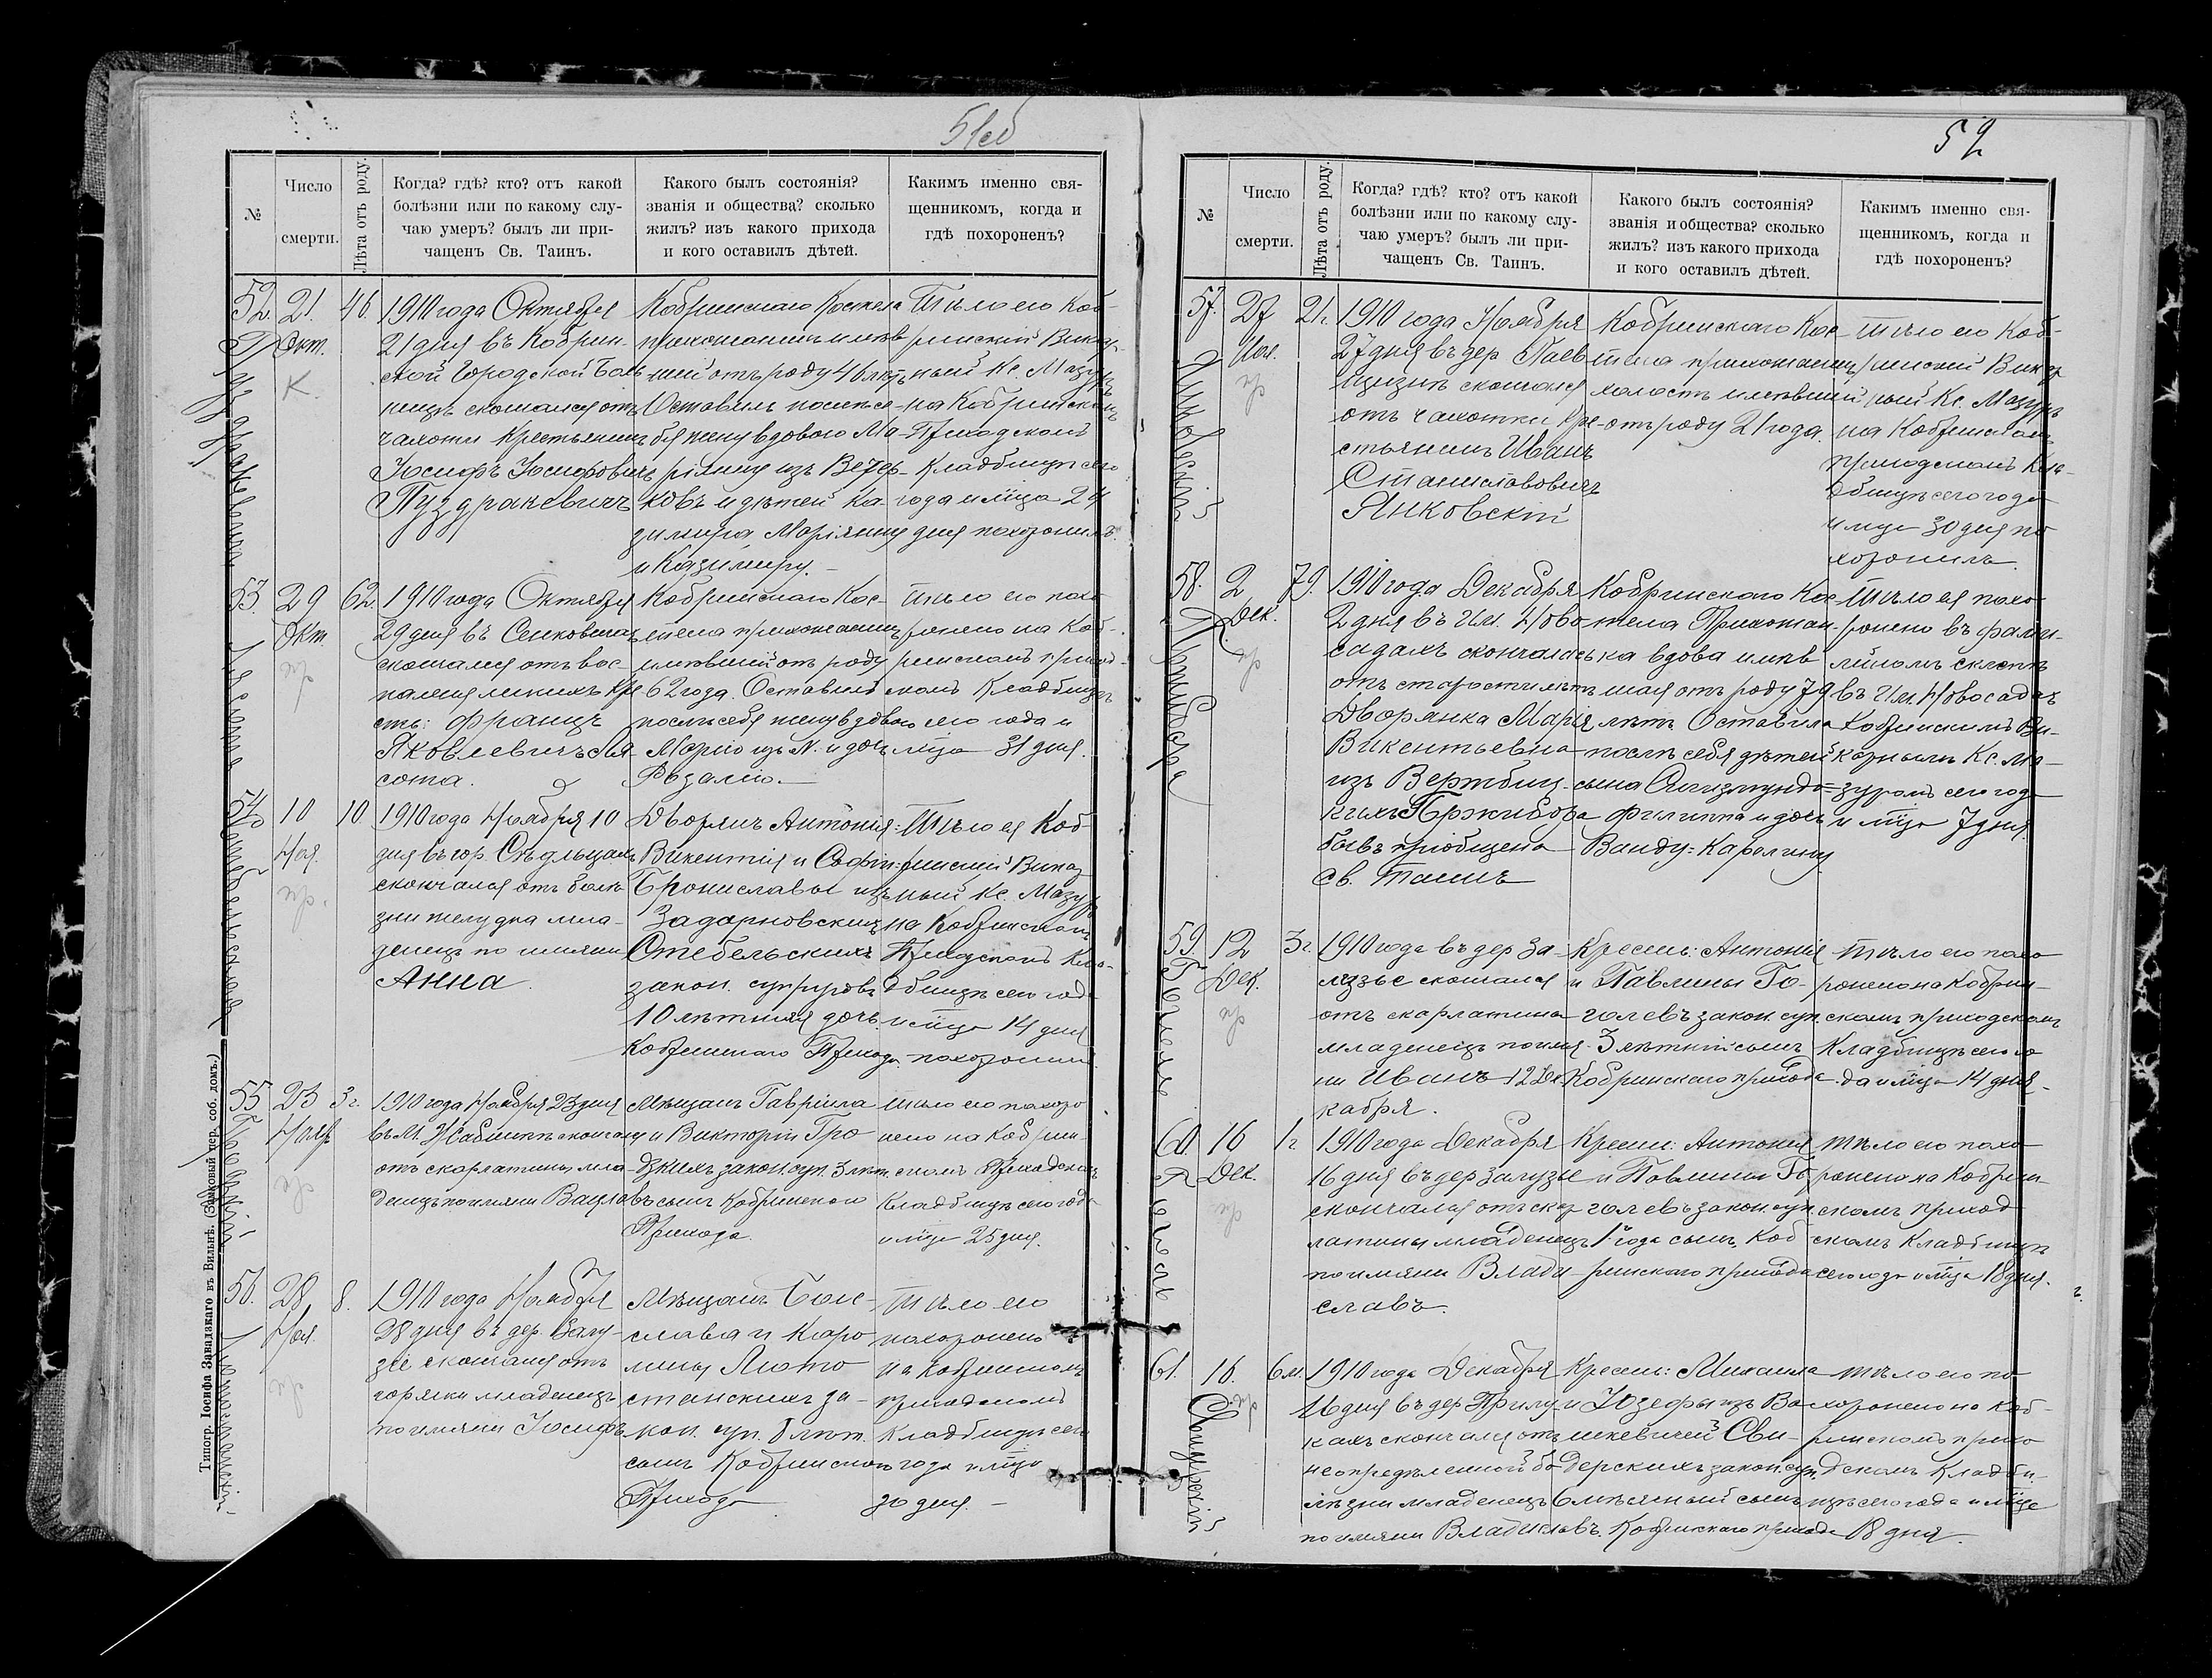 51об
№
Число
смерти.
Лѣта отъ роду.
Когда? гдѣ? кто? отъ какой
болѣзни или по какому слу-
чаю умеръ? былъ ли при-
чащенъ Св. Таинъ.
Какого былъ состоянія?
званія и общества? сколько
жилъ? изъ какого прихода
и кого оставилъ дѣтей.
Какимъ именно свя-
щенникомъ, когда и
гдѣ похороненъ?
52.
21.
Окт.
К.
46.
Пуздракевичъ
1910 года Октября
21 дня въ Кобрин-
ской Городской Боль
ницѣ скончался отъ
чахотки Крестьянинъ
Іосифъ Іосифовичъ
Пуздракевичъ
Кобринскаго Костела
прихожанинъ имѣв
шій отъ роду 46 лѣтъ
Оставилъ послѣ се-
бя жену вдовою Ма-
ріянну изъ
ковъ и дѣтей Ка-
зимира Маріянну
и Казимиру.
Тѣло его Коб-
ринскій Викар-
ный Кс. Мазуръ
на Кобринскомъ
Приходскомъ
Кладбищѣ сего
года и мца 24
дня похоронилъ.
53.
29
Окт.
пр
62.
Лясота
1910 года Октября
29 дня въ
скончался отъ вос-
паленія легкихъ Кре
сть: Францъ
Яковлевичъ Ля-
сота.
Кобринскаго Кос-
тела прихожанинъ
имѣвшій отъ роду
62 года. Оставилъ
послѣ себя жену вдовою
Марію изъ N. и дочь
Розалію.
Тѣло его похо-
ронено на Коб-
ринскомъ приход-
скомъ Кладбищѣ
сего года и
мца 31 дня.
54.
10
Ноя.
пр.
10.
Стебельская
1910 года Ноября 10
дня въ гор.
скончалась отъ болѣ
зни желудка мла-
денецъ по имяни
Анна.
Дворянъ Антонія-
Викентія и Софіи-
Брониславы изъ
Задарновскихъ
Стебельскихъ
закон. супруговъ
10 лѣтняя дочь
Кобринскаго Прихода.
Тѣло ея Коб-
ринскій Викар
ный Кс. Мазуръ
на Кобринскомъ
Приходскомъ Кла-
дбищѣ сего года
и мца 14 дня
похоронилъ.
55
23
Нояб
пр
3 г.
1910 года Ноября 23 дня
отъ скарлатины мла-
денецъ по имяни Вацла
Мѣщанъ Гавріила
и Викторіи Гро
дзкихъ закон. суп. 3 лѣт.
въ сынъ Кобринскаго
Прихода.
Тѣло его похоро
нено на Кобрин-
скомъ Приходскомъ
Кладбищѣ сего года
и мца 25 дня.
56.
28
Ноя.
пр
8.
1910 года Ноября
28 дня въ дер. Залу-
зье скончался отъ
горячки младенецъ
по имяни Іосифъ
Мѣщанъ Боле-
слава и Каро
лины Люто
станскихъ за-
кон. суп. 8 лѣт.
сынъ Кобринскаго
Прихода
Тѣло его
похоронено
на Кобринскомъ
приходскомъ
Кладбищѣ сего
года и мца
30 дня.
Типогр. Іосифа Завадзкаго въ Вильнѣ. (Замковый пер. соб. домъ.)
52
№
Число
смерти.
Лѣта отъ роду.
Когда? гдѣ? кто? отъ какой
болѣзни или по какому слу-
чаю умеръ? былъ ли при-
чащенъ Св. Таинъ.
Какого былъ состоянія?
званія и общества? сколько
жилъ? изъ какого прихода
и кого оставилъ дѣтей.
Какимъ именно свя-
щенникомъ, когда и
гдѣ похороненъ?
57.
27
Ноя.
пр
21 г.
Янковскій
1910 года Ноября
27 дня въ дер
скончался
отъ чахотки Кре-
стьянинъ Иванъ
Станиславовичъ
Янковскій
Кобринскаго Кос-
тела прихожанинъ
холостъ имѣвшій
отъ роду 21 года.
Тѣло его Коб-
ринскій Викар
ный Кс. Мазуръ
на Кобринскомъ
приходскомъ Кла-
дбищѣ сего года
и мца 30 дня по
хоронилъ.
58.
2
Дек.
пр
79.
Пржибора
1910 года Декабря
2 дня въ Им. Ново
садахъ скончалась
отъ старости лѣтъ
Дворянка Марія
Викентьевна
изъ Вержбиц-
кихъ Пржибора
бывъ пріобщена
Св. Таинъ
Кобринскаго Кос-
тела Прихожан-
ка вдова имѣв
шая отъ роду 79
лѣтъ. Оставила
послѣ себя дѣтей
сына Сигизмунда-
Филиппа и дочь
Ванду-Каролину
Тѣло ея похо-
ронено въ фами-
лійномъ склепѣ
въ Им. Новосадахъ
Кобринскимъ Ви-
карнымъ Кс. Ма-
зуромъ сего года
и мца 7 дня.
59.
12
Дек.
пр
3 г.
Гоголевъ
1910 года въ дер За-
лузье скончался
отъ скарлатины
младенецъ по имя-
ни Иванъ 12 Де
кабря.
Кресть: Антонія
и Павлины Го-
голевъ закон. суп.
3 лѣтній сынъ
Кобринскаго прихода
Тѣло его похо
ронено на Кобрин-
скомъ приходскомъ
Кладбищѣ сего го
да и мца 14 дня.
60.
16
Дек.
пр
1 г
1910 года Декабря
16 дня въ дер Залузье
скончался отъ скар
латины младенецъ
по имяни Влади-
славъ.
Кресть: Антонія
и Павлины Го
голевъ закон. суп.
1 года сынъ Коб
ринскаго прихода
Тѣло его похо
ронено на Кобрин-
скомъ приход
скомъ Кладбищѣ
сего года и мца 18 дня.
61.
16.
пр
6 м.
Свидерскій
1910 года Декабря
16 дня въ дер Прилу
кахъ скончался отъ
неопредѣленной бо
лѣзни младенецъ
по имяни Владиславъ.
Кресть: Михаила
и Юзефы изъ Ва
шкевичей Сви-
дерскихъ закон. суп.
6 мѣсячный сынъ
Кобринскаго прихода
Тѣло его по
хоронено на Коб-
ринскомъ прихо
дскомъ Кладби-
щѣ сего года и мца
18 дня.